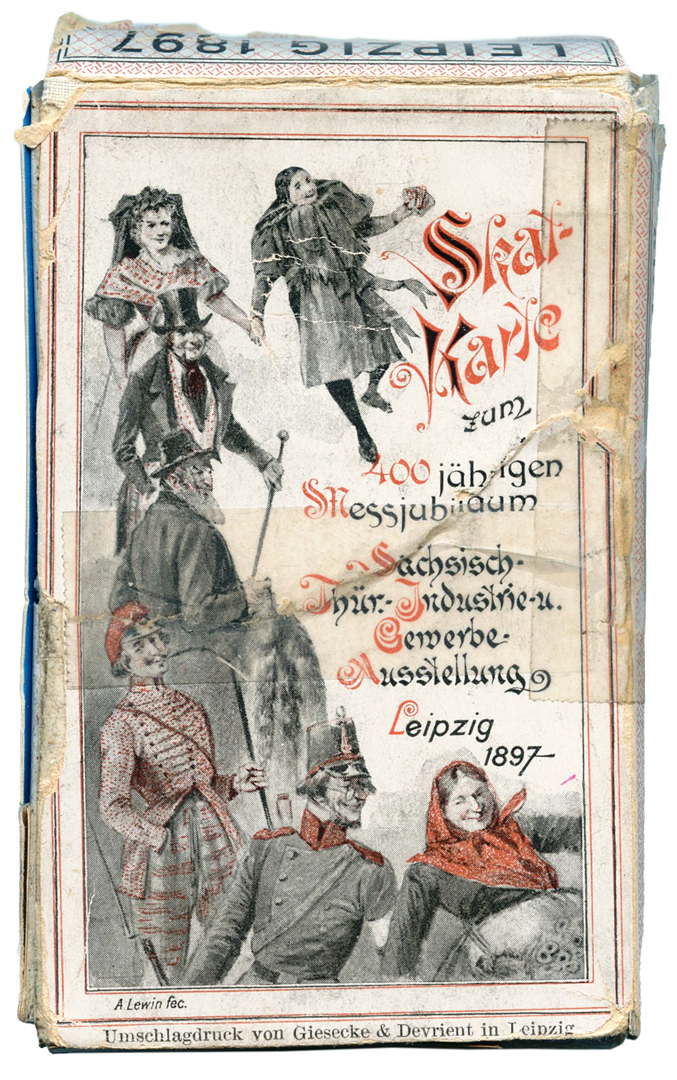 LEIPZIG 1897
Skat-
Karte
zum
400 jährigen
Messjubiläum
Sächsisch-
Thür.-Industrie-u.
Gewerbe-
Ausstellung
Leipzig
1897
A Lewin fec.
Umschlagdruck von Giesecke & Devrient in Leipzig